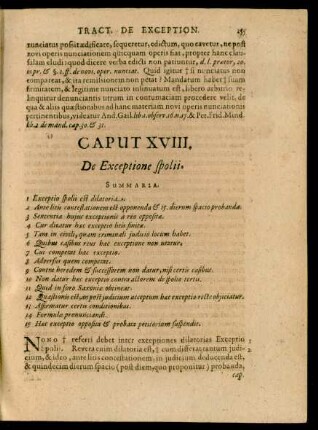 TRACT. DE EXCEPTION.
nunciatus possit ædificare, sequeretur, edictum, quo cavetur, ne post
novi operis nunciationem quicquam operis fiat, propter hanc clau-
sulam eludi quod dicere verba edicti non patiuntur, d. l. prætor,
§. 1. ff. de novi. oper. nuntiat. Quid igitur † si nunciatus non
compareat, & ita remissionem non petat? Mandatum habet † suam
firmitatem, & legitime nunciato insinuatum est, libero arbitrio re-
linquitur denunciantis utrum in contumaciam procedere velit, de
qua & aliis quæstionibus ad hanc materiam novi operis nunciationis
pertinentibus, videatur And. Gail. lib. 1. observ. & Pet. Frid. Mind.
lib. 2. de mand. cap. 30. & 31.
CAPUT XVIII.
De Exceptione spolii.
SUMMARIA.
1 Exceptio spolii est dilatoria.
2 Ante litis contestationem est opponenda & 15. dierum spacio probanda.
3 Sententia hujus exceptionis à reo opposita.
4 Cur dicatur hæc exceptio litis finitæ.
5 Tam in civili, quam criminali judicio locum habet.
6 Quibus casibus reus hac exceptione non utatur,
7 Cui competat hæc exceptio.
8 Adversus quem competat.
9 Contra heredem & successorem non datur, nisi certis casibus.
10 Non datur hæc exceptio contra actorem de spolio tertii.
11 Quid in foro Saxonico obtineat.
12 Quæstionis est, an post judicium acceptum hæc exceptio recte objiciatur.
13 Affirmatur certis conditionibus.
14 Formula pronunciandi.
15 Hæc exceptio opposita & probata petitorium suspendit.
NONO † referri debet inter exceptiones dilatorias Exceptio
spolii. Revera enim dilatoria est, † cum differat tantum judi-
cium, & ideo, ante litis contestationem in judicium deducenda est,
& quindecim dierum spacio (post diem, quo proponitur) probanda,
cap.